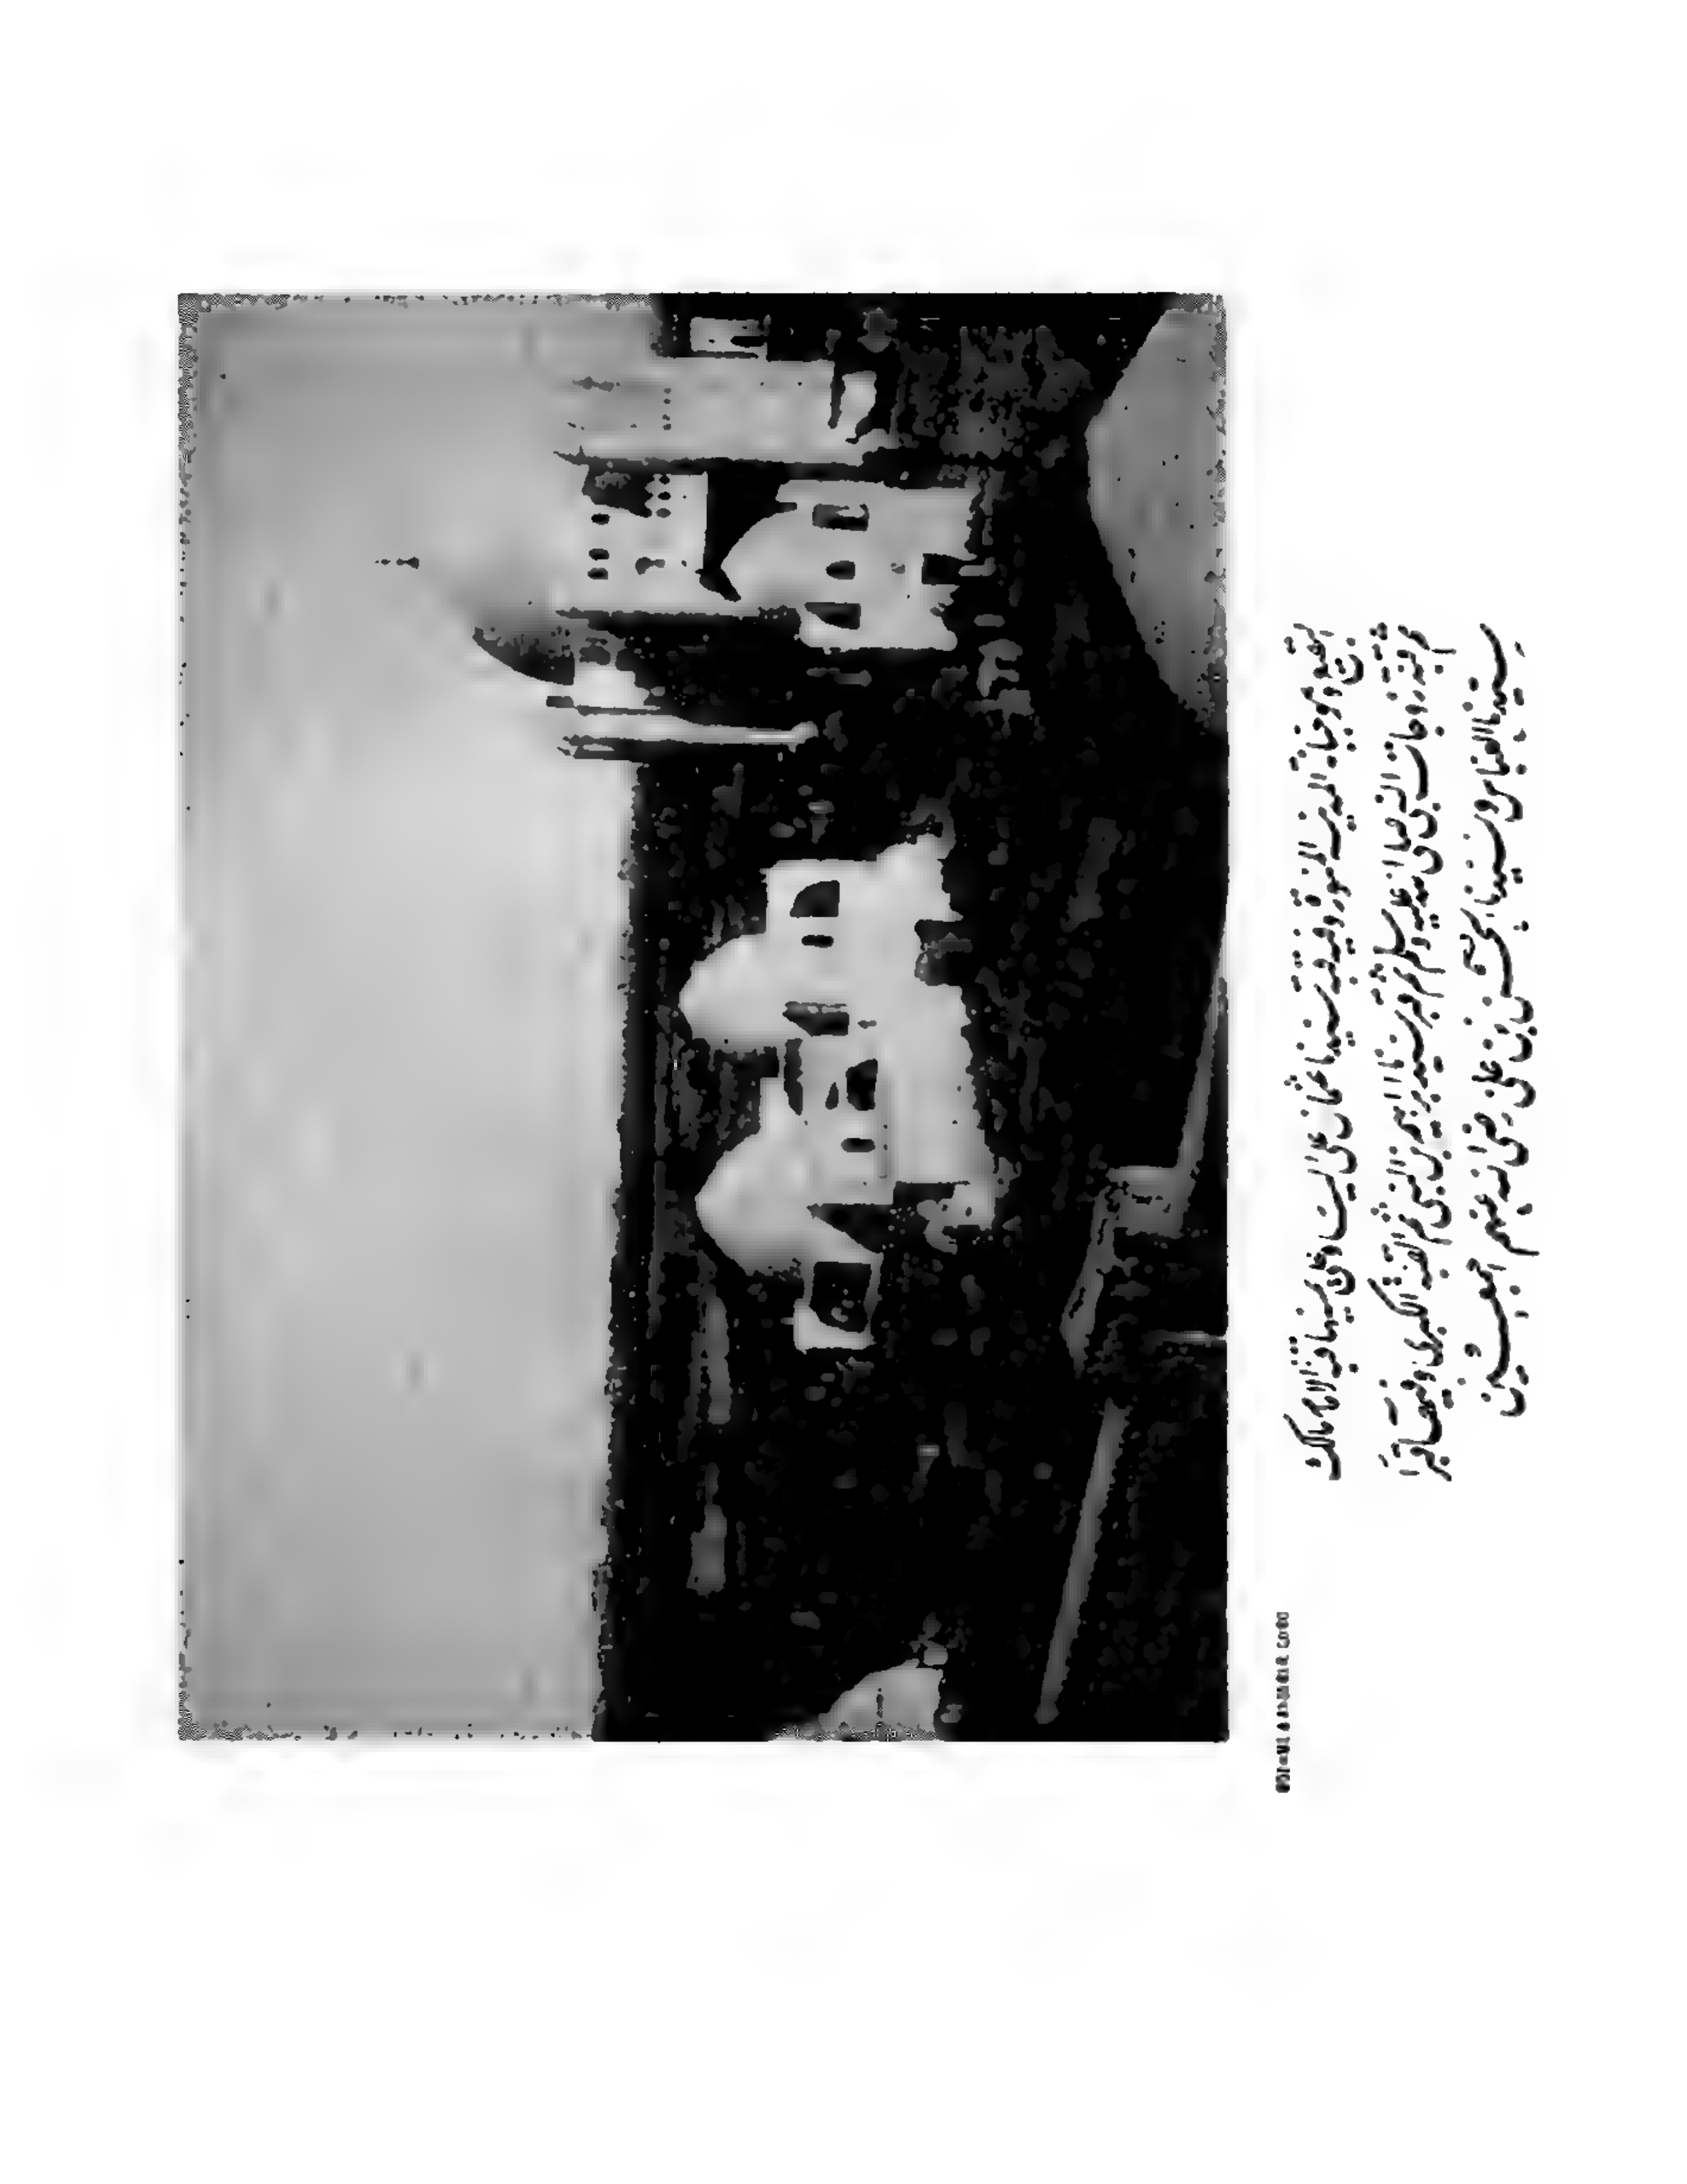 البقيع وهو جبانة المدينة المنورة وفيه قبة سيدنا عثمان على اليسار وعلى يمينها قبة الامام مالك
ثم قبة زوجات النبي صلى الله عليه وسلم ثم قبر سيدنا ابراهيم بن النبي ثم القبة الكبرى وفيها قبرا
سيدنا العباس وسيدنا الحسن بن علي رضي الله عنهم اجمعين